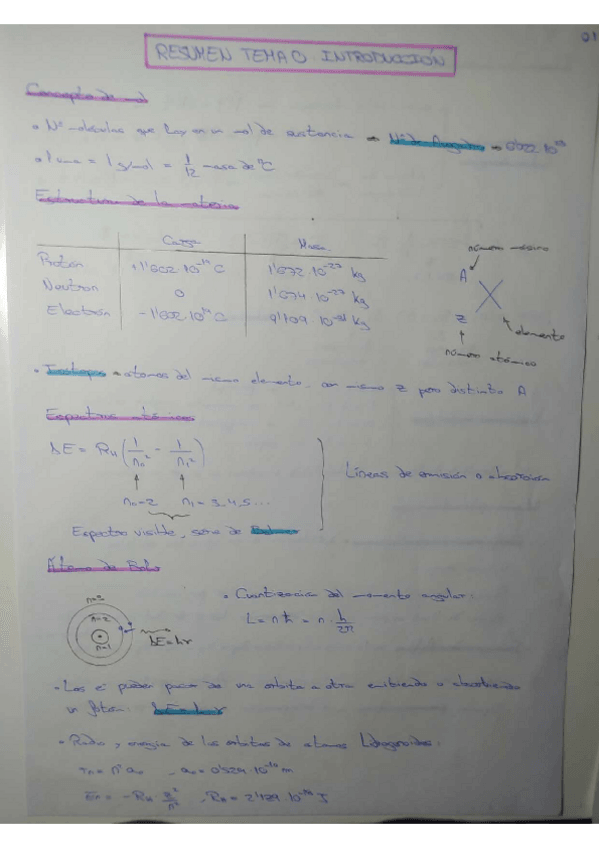 01
RESUMEN TEMA 0. INTRODUCCIÓN
Concepto de mol
• Nº moléculas que hay en un mol de sustancia → Nº de Avogadro → 6'022·10²³
• 1 uma = 1 g/mol = 1/12 masa de ¹²C
Estructura de la materia
Carga Masa
Protón 1'602·10⁻¹⁹ C 1'672·10⁻²⁷ kg
Neutron 0 1'674·10⁻²⁷ kg
Electrón -1'602·10⁻¹⁹ C 9'109·10⁻³¹ kg
número másico
A
X
Z
elemento
número atómico
• Isótopos → átomos del mismo elemento, con mismo Z pero distinto A
Espectros atómicos
ΔE = R_H (1/n₀² - 1/n₁²)
n₀=2 n₁=3,4,5...
Espectro visible, serie de Balmer
Líneas de emisión o absorción
Átomo de Bohr
n=3
n=2
n=1
ΔE=hν
• Cuantización del momento angular:
L = nħ = n·h/2π
• Los e⁻ pueden pasar de una órbita a otra emitiendo o absorbiendo
un fotón. ΔE=hν
• Radio y energía de las órbitas de átomos hidrogenoides:
rn = n² a₀ , a₀ = 0'529·10⁻¹⁰ m
En = -R_H Z²/n²